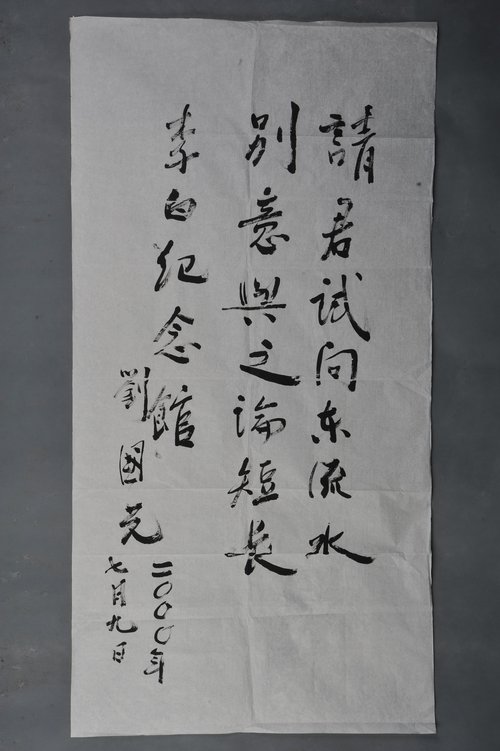 請君试问东流水
别意與之論短長
李白纪念館
劉國光
二〇〇〇年
七月九日